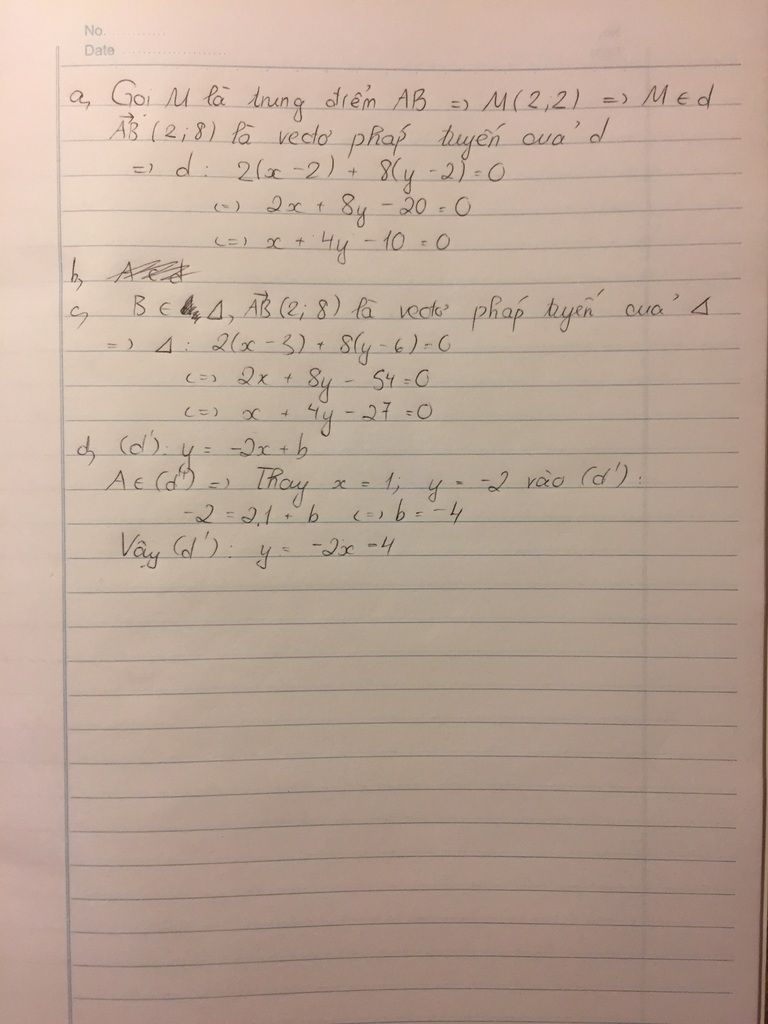 No. ............
Date ......................
a, Gọi M là trung điểm AB => M(2,2) => M ∈ d
AB→ (2;8) là vectơ pháp tuyến của d
=> d: 2(x-2) + 8(y-2)=0
<=> 2x + 8y -20 = 0
<=> x + 4y -10 = 0
b,
c, B ∈ Δ, AB→(2;8) là vectơ pháp tuyến của Δ
=> Δ: 2(x-3) + 8(y-6)=0
<=> 2x + 8y - 54 = 0
<=> x + 4y - 27 = 0
d, (d'): y = -2x + b
A ∈ (d') => Thay x = 1; y = -2 vào (d'):
-2 = 2.1 + b <=> b = -4
Vậy (d'): y = -2x -4